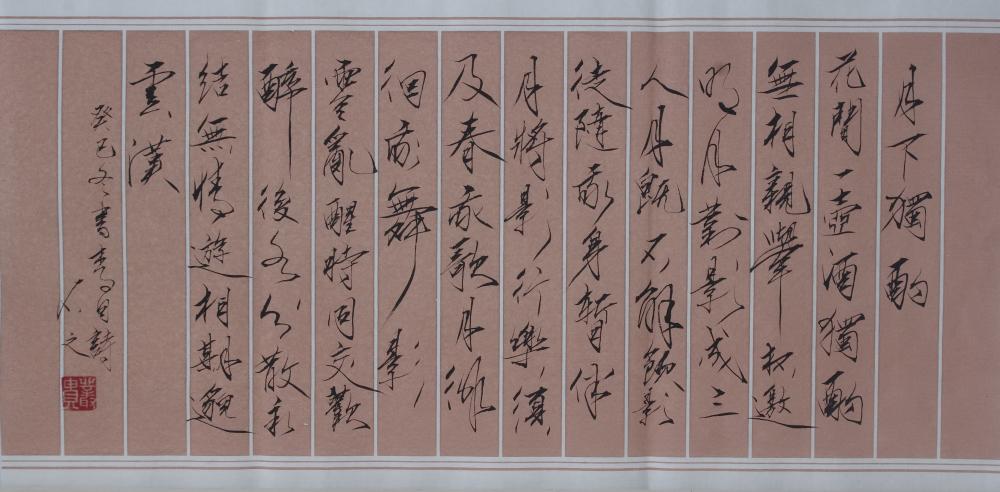 月下獨酌
花間一壺酒獨酌
無相親舉杯邀
明月對影成三
人月既不解飲影
徒隨我身暫伴
月將影行樂須
及春我歌月徘
徊我舞影
零亂醒時同交歡
醉後各分散永
結無情遊相期邈
雲漢
癸巳冬書李白詩